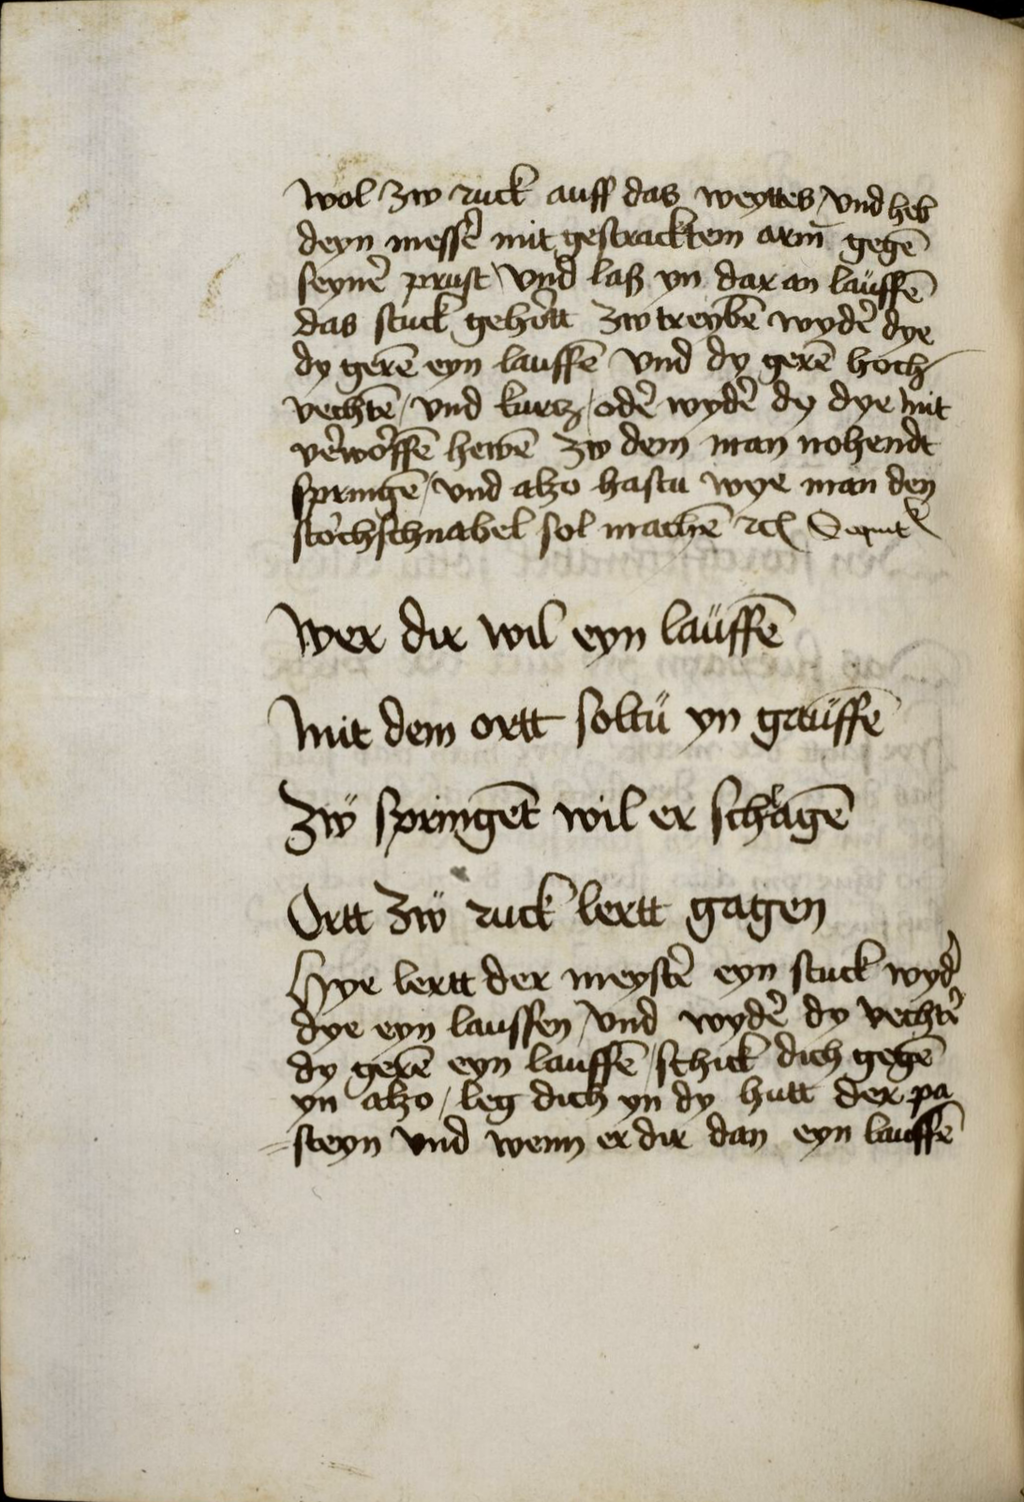 wol zw ruck auff das weyttes / vnd heb
deyn messẽr mit gestracktem arm̄ gegē
seynẽr prust / vnd laß yn dar an lauffē
das stuck gehortt zw treybē wydẽr dye
dy gerē eyn lauffē vnd dy gerē hoch
vechtē / vnd kurcz / odẽr wydẽr dy dye mit
vẽrworffē hewē zw dem man nohendt
springē / vnd alzo hastu wye man den
storchschnabel sol machē ꝛc Sequitr
Wer dir wil eyn lauffē
Mit dem ortt soltu yn gauffē
Zw springēt wil er schlagē
Ortt zw ruck lertt gagen
Hye lertt der meystẽr eyn stuck wydẽr
dye eyn lauffen / vnd wydẽr dy vechtẽr
dy gerē eyn lauffē / schick dich gegē
yn alzo / leg dich yn dy hutt der pa
=steyn vnd wenn er dir dan eyn lauffē